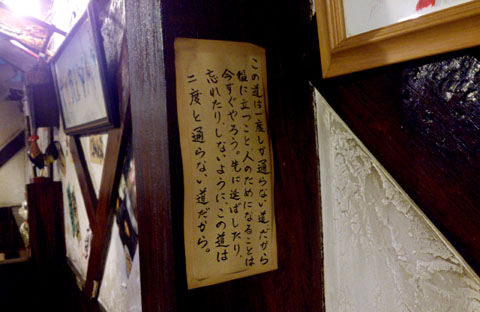 この道は一度しか通らない道だから
役に立つこと、人のためになることは
今すぐやろう。先に延ばしたり、
忘れたり、しないように、この道は
二度と通らない道だから。